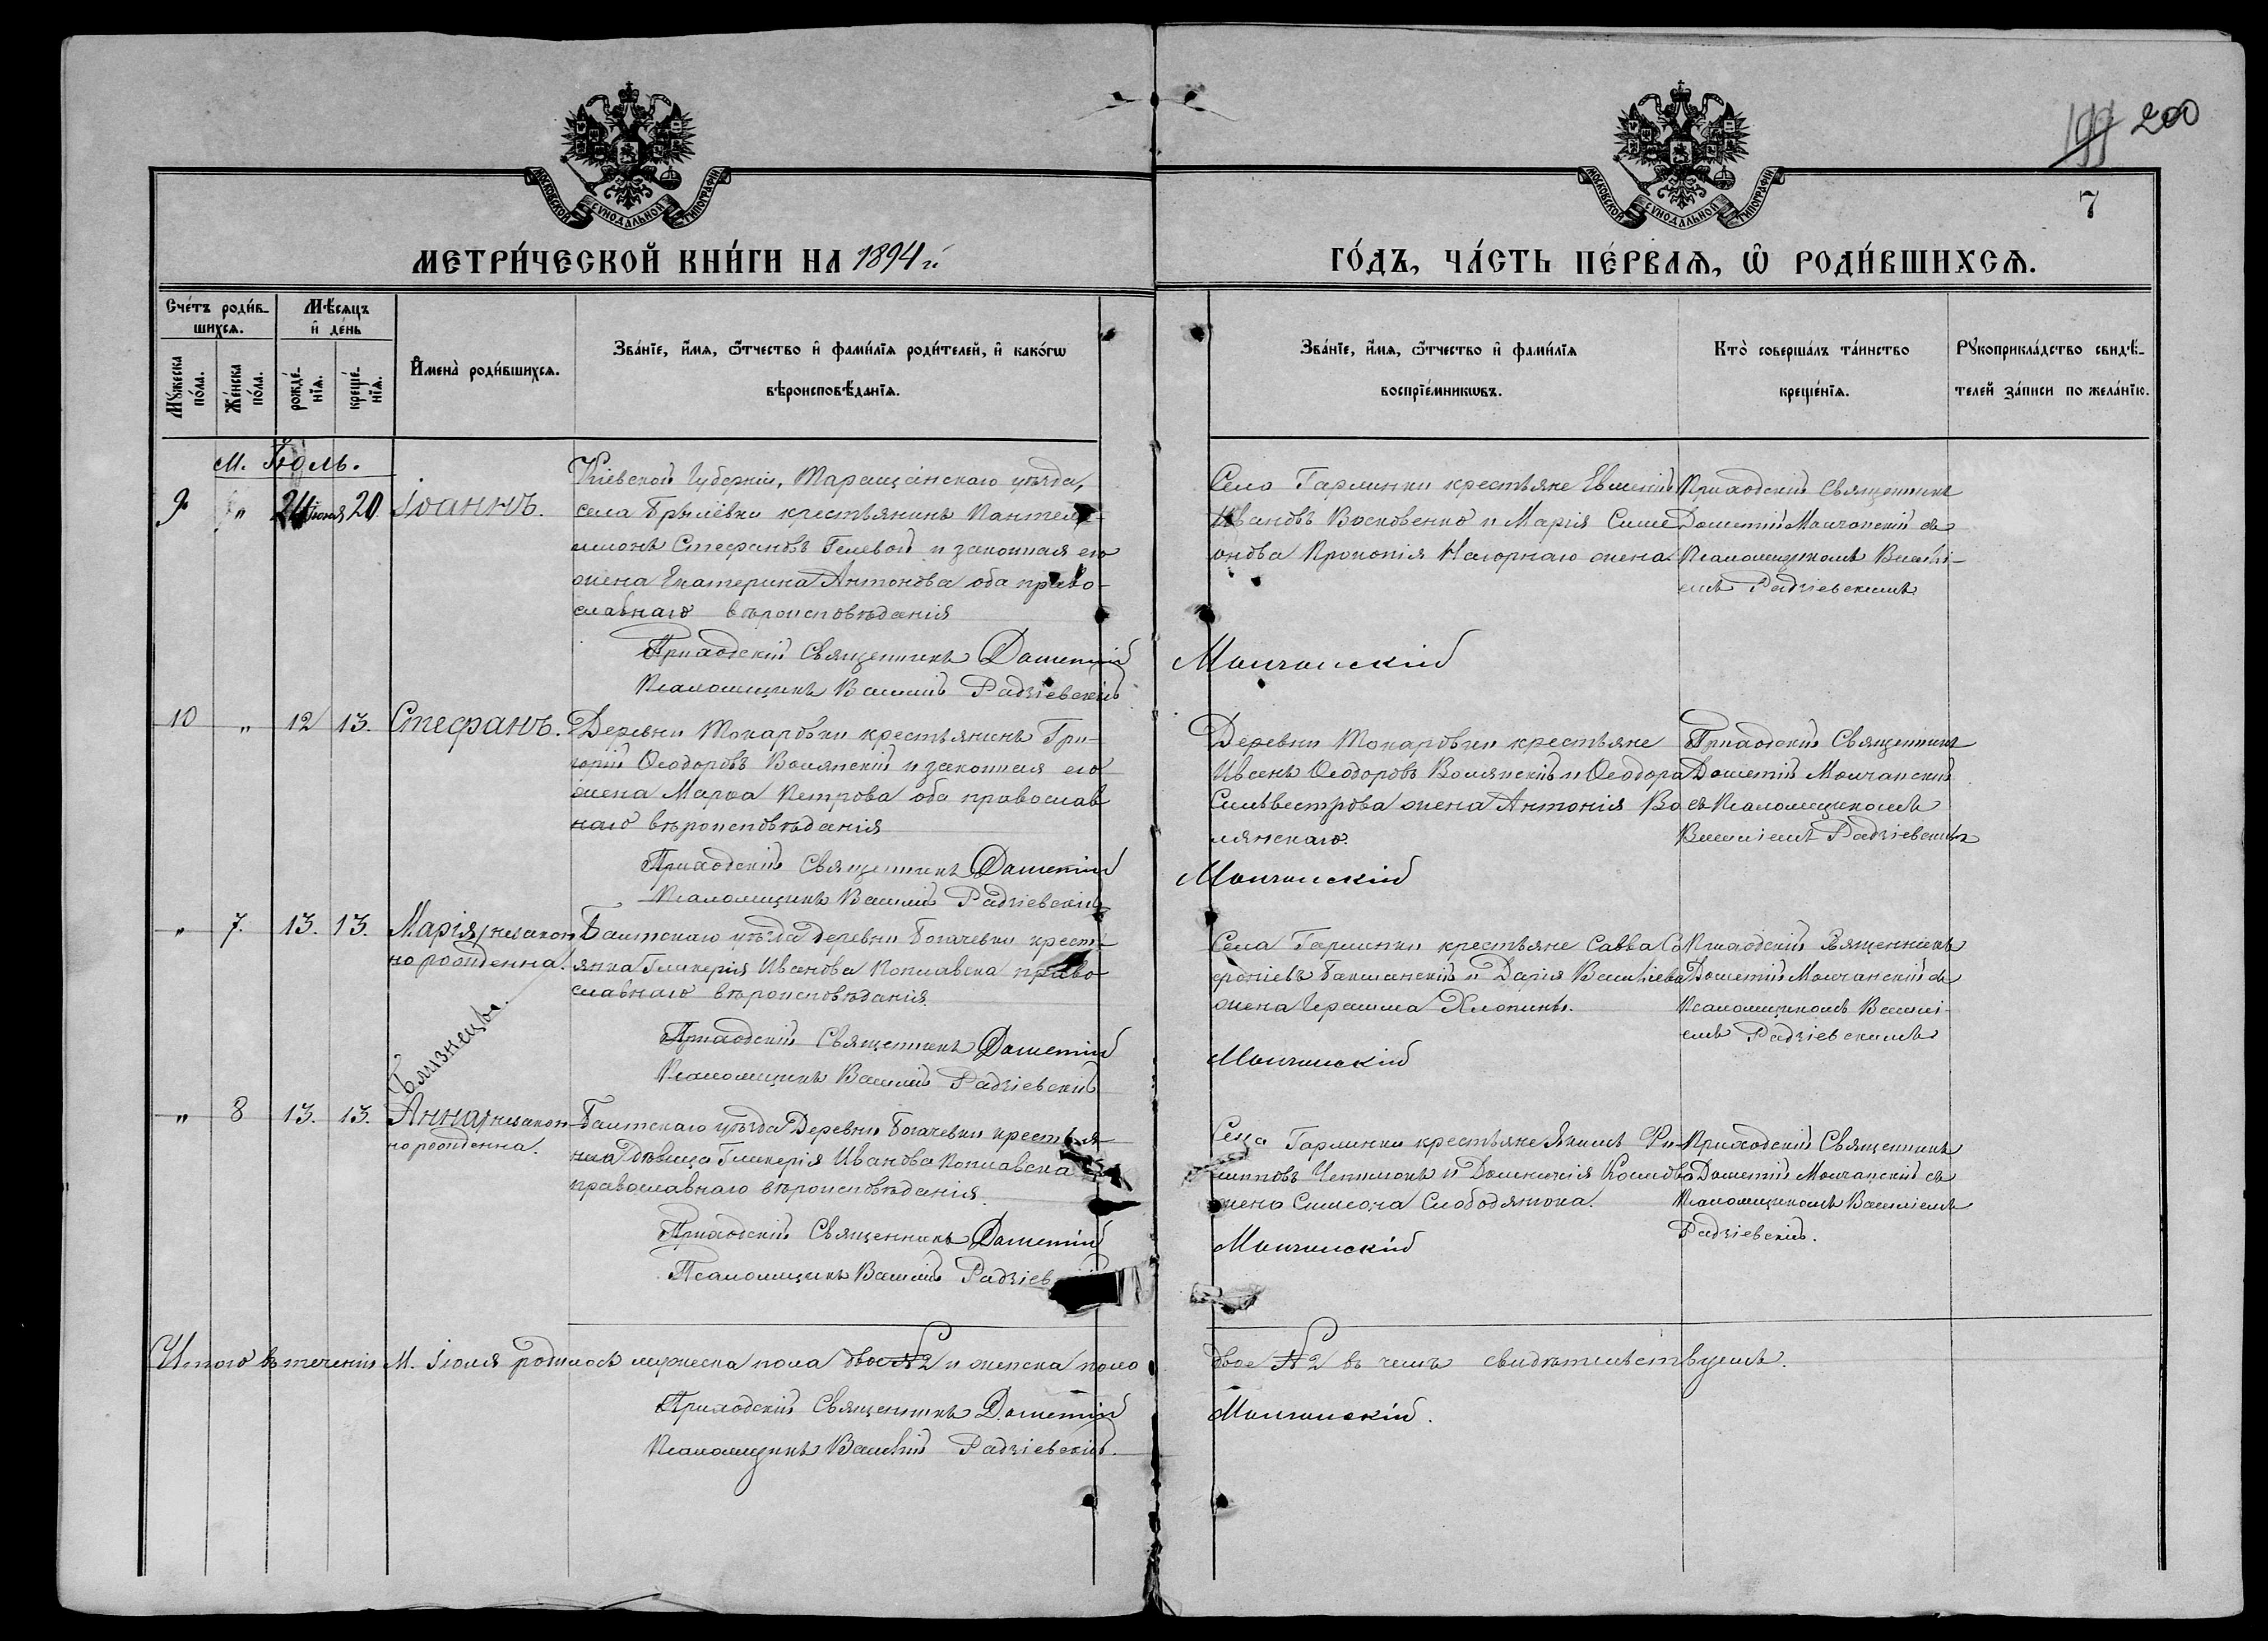 199 200
7
МОСКОВСКОЙ СѴНОДАЛЬНОЙ ТИПОГРАФІИ
МОСКОВСКОЙ СѴНОДАЛЬНОЙ ТИПОГРАФІИ
МЕТРИ́ЧЕСКОЙ КНИ́ГИ НА 1894й
ГО́ДЪ, ЧА́СТЬ ПЕ́РВАѦ, Ѿ РОДИ́ВШИХСѦ.
Сче́тъ роди́в-
шихсѧ.
Мѣ́сѧцъ
и҆ де́нь
Мꙋ́жеска
по́ла.
Же́нска
по́ла.
рожде́-
нїѧ.
креще́-
нїѧ.
И҆мена̀ роди́вшихсѧ.
Зва́нїе, и҆́мѧ, ѻ҆́тчество и҆ фами́лїѧ роди́телей, и҆ како́гѡ
вѣроисповѣ́данїѧ.
Зва́нїе, и҆́мѧ, ѻ҆́тчество и҆ фами́лїѧ
воспрїе́мникѡвъ.
Кто̀ соверша́лъ та́инство
креще́нїѧ.
Рꙋкоприкла́дство свидѣ́-
телей за́писи по жела́нїю.
М. Іюль.
9 " Іюня 20 Іоаннъ.
Кіевской Губерніи, Таращанскаго уѣзда,
села крестьянинъ Пантелей-
монъ Стефановъ Гелевой и законная его
жена Екатерина Антонова оба право-
славнаго вѣроисповѣданія
Приходскій Священникъ Дометій
Псаломщикъ Василій Радзіевскій
Село Гарминки крестьяне Евмений
Ивановъ Восковенко и Марія Симе
онова Прокопія Нагорнаго жена.
Молчанскій
Приходскій Священникъ
Дометій Молчанскій съ
Псаломщикомъ Василі-
емъ Радзіевскимъ
10 " 12 13. Стефанъ.
Деревни Токаровки крестьянинъ Гри-
горій Ѳеодоровъ Волянскій и законная его
жена Марѳа Петрова оба православ
наго вѣроисповѣданія
Приходскій Священникъ Дометій
Псаломщикъ Василій Радзіевскій
Деревни Токаровки крестьяне
Иванъ Ѳеодоровъ Волянскій и Ѳеодора
Сильвестрова жена Антонія Во
лянскаго.
Молчанскій
Приходскій Священникъ
Дометій Молчанскій
съ Псаломщикомъ
Василіемъ Радзіевскимъ
" 7. 13. 13. Марія, незакон
но рожденна.
Близнецы.
Балтскаго уѣзда деревни Богачевки кресть-
янка Гликерія Иванова Поплавска право
славнаго вѣроисповѣданія.
Приходскій Священникъ Дометій
Псаломщикъ Василій Радзіевскій
Села Гарминки крестьяне Савва Со
фроніевъ Бакшанскій и Дарія Василіева
жена Герасима Хлопика.
Молчанскій
Приходскій Священникъ
Дометій Молчанскій съ
Псаломщикомъ Василі-
емъ Радзіевскимъ
" 8 13. 13. Анна, незакон
но рожденна.
Балтскаго уѣзда Деревни Богачевки крестья
нка дѣвица Гликерія Иванова Поплавска
православнаго вѣроисповѣданія.
Приходскій Священникъ Дометій
Псаломщикъ Василій Радзіев
Села Гарминки крестьяне Якимъ Фи-
липповъ и Домникія
жена Симеона Слободянюка.
Молчанскій
Приходскій Священникъ
Дометій Молчанскій съ
Псаломщикомъ Василіемъ
Радзіевскій.
Итого въ теченіи М. Іюля родилось мужеска пола двое № 2 и женска пола двое № 2 въ чемъ свидѣтельствуемъ.
Приходскій Священникъ Дометій Молчанскій.
Псаломщикъ Василій Радзіевскій.